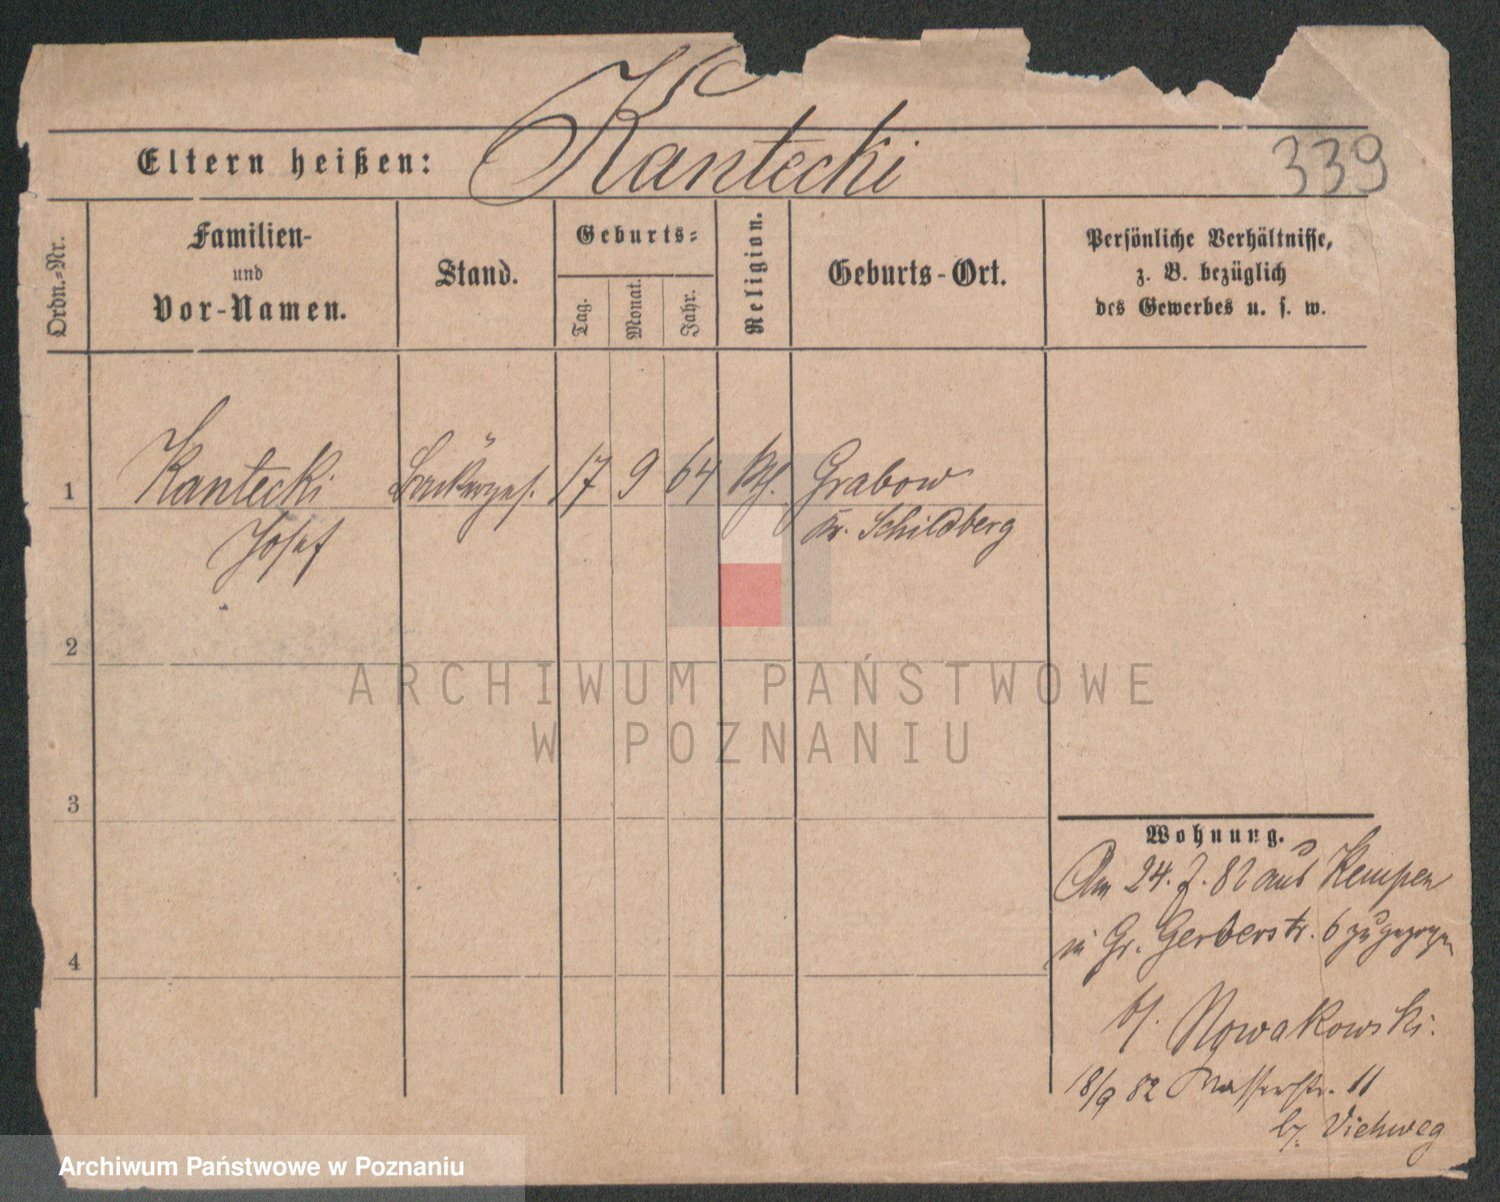 Kantecki
Eltern heißen:
339
Ordn.-Nr.
Familien-
und
Vor-Namen.
Stand.
Geburts-
Tag.
Monat.
Jahr.
Religion.
Geburts-Ort.
Persönliche Verhältnisse,
z. B. bezüglich
des Gewerbes u. s. w.
1
Kantecki
Josef
Bäckerges.
17
9
64
kth.
Grabow
Kr. Schildberg
2
3
4
Wohnung.
Am 24. 7. 82 aus Kempen
in Gr. Gerberstr. 6 zugezogen
b/. Nowakowski.
18/9 82 Wasserstr. 11
b/. Viehweg
ARCHIWUM PAŃSTWOWE
W POZNANIU
Archiwum Państwowe w Poznaniu